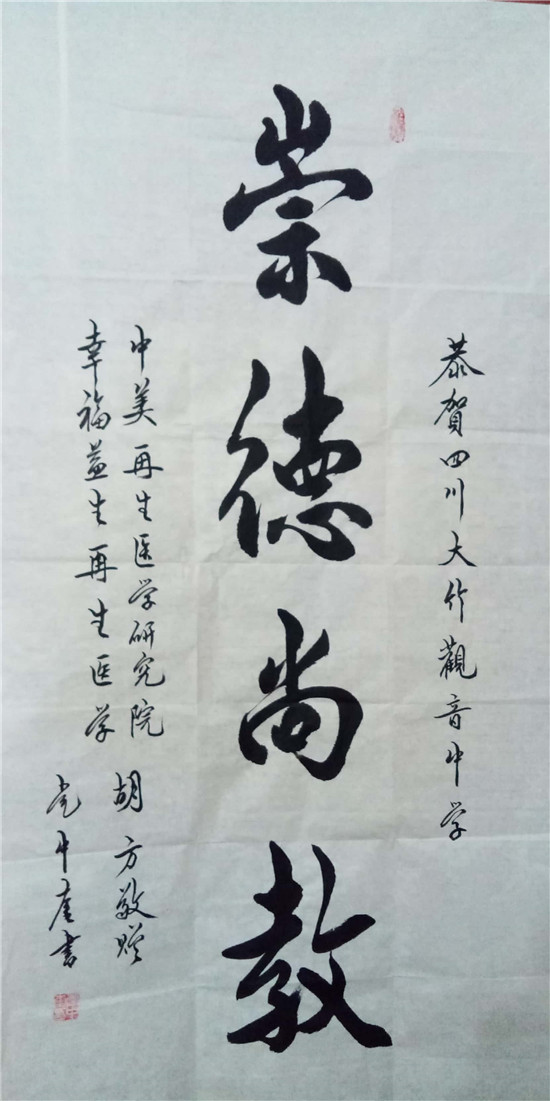 恭賀四川大竹觀音中学
崇德尚教
中美再生医学研究院
幸福益生再生医学
胡方敬赠